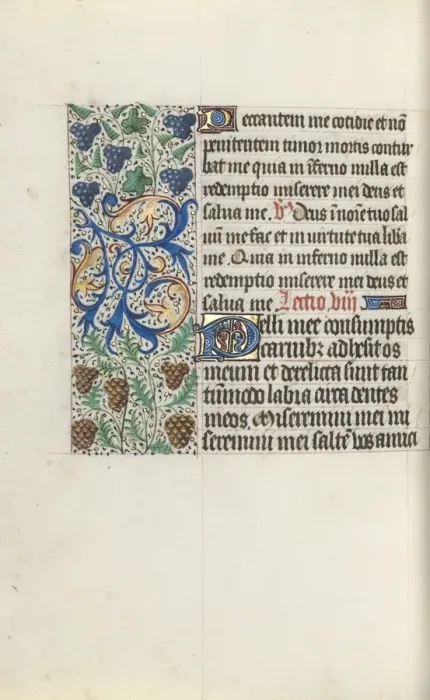 Peccantem me cotidie et nō
penitentem timor mortis contur
bat me quia in īferno nulla est
redemptio miserere mei deus et
salua me. V̄s Deus ī noīe tuo sal
uū me fac et in virtute tua liba
me. Quia in inferno nulla est
redemptio miserere mei deus et
salua me. Lectio viij
Pelli mee consumptis
carnibꝫ adhesit os
meum et derelicta sunt tan
tūmodo labia circa dentes
meos. Miseremini mei mi
seremini mei saltē vos amici